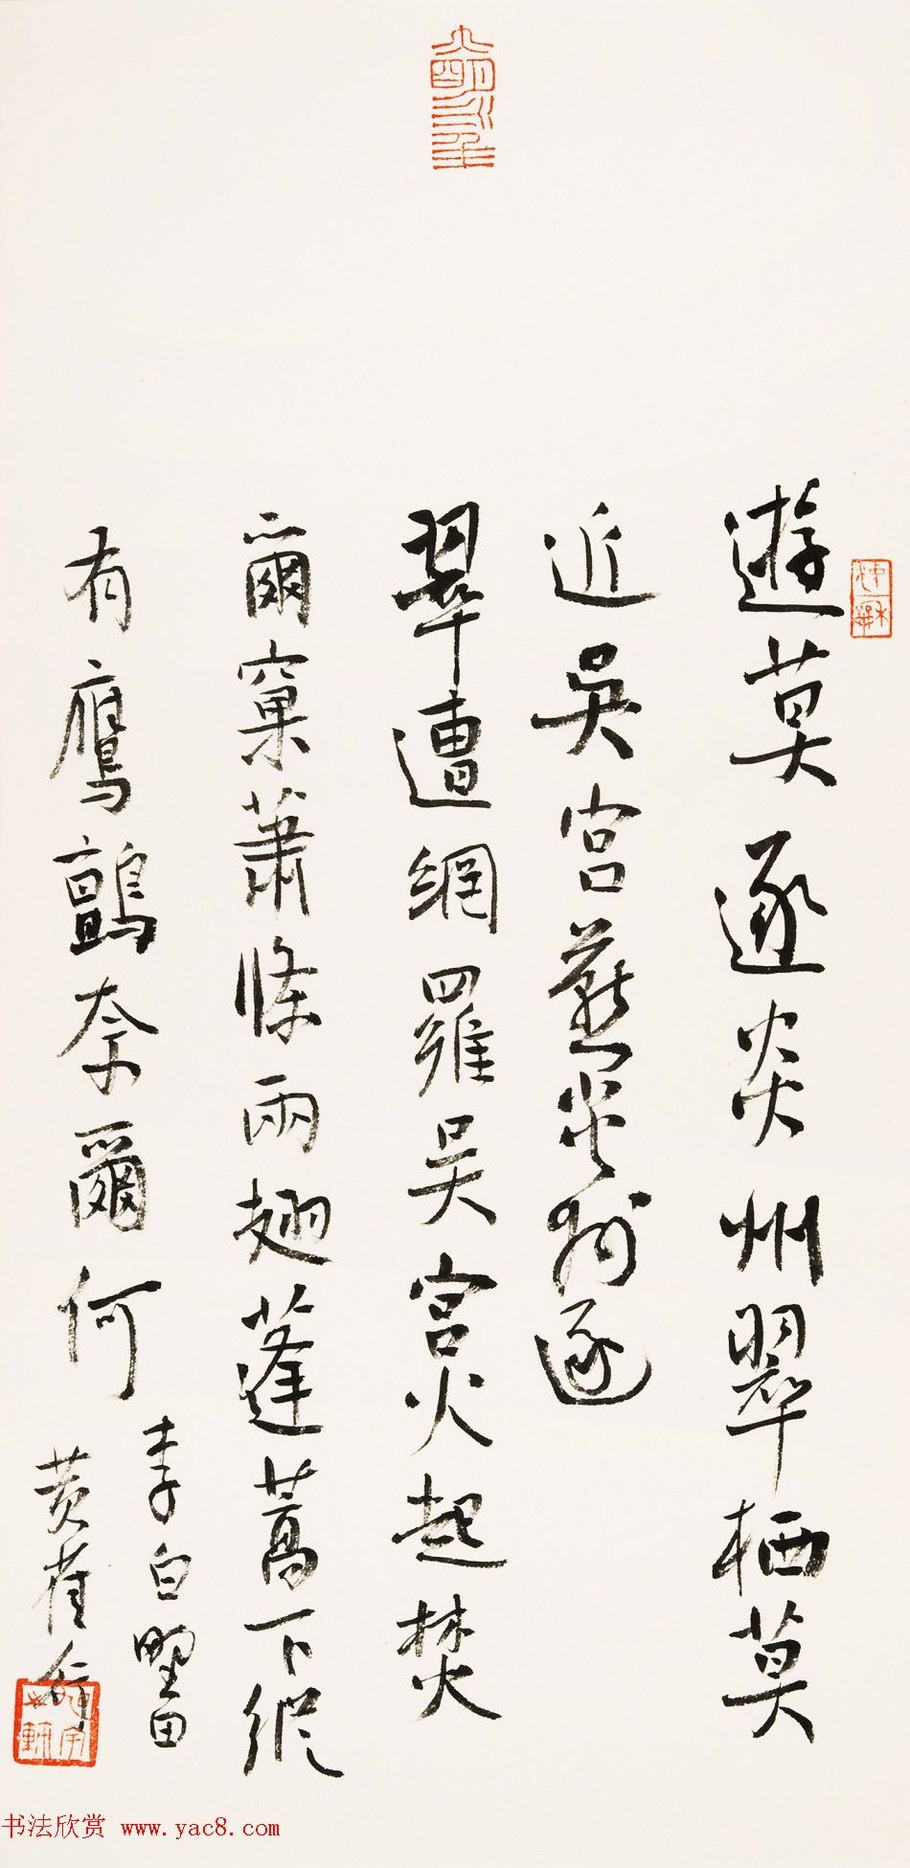 遊莫逐炎州翠栖莫
近吳宮燕炎州逐
翠遭網羅吳宮火起焚
爾窠蕭條兩翅蓬蒿下縱
有鷹鸇奈爾何
李白野田
黄雀行
书法欣赏 www.yac8.com